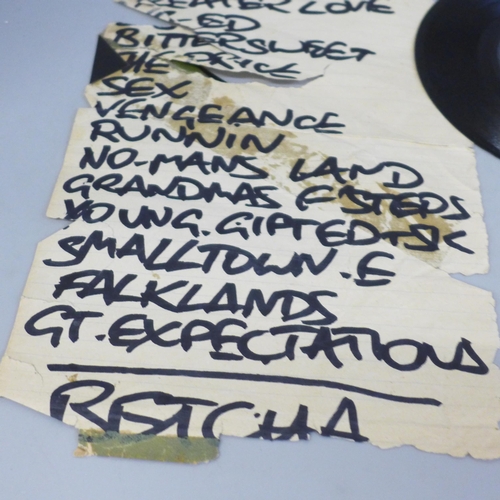 GREATER LOVE
-ED
BITTERSWEET
THE PRICE
SEX
VENGEANCE
RUNNIN
NO-MANS LAND
GRANDMAS F STEPS
YOUNG.GIFTED+SK
SMALLTOWN.E
FALKLANDS
GT.EXPECTATIONS
BETCHA